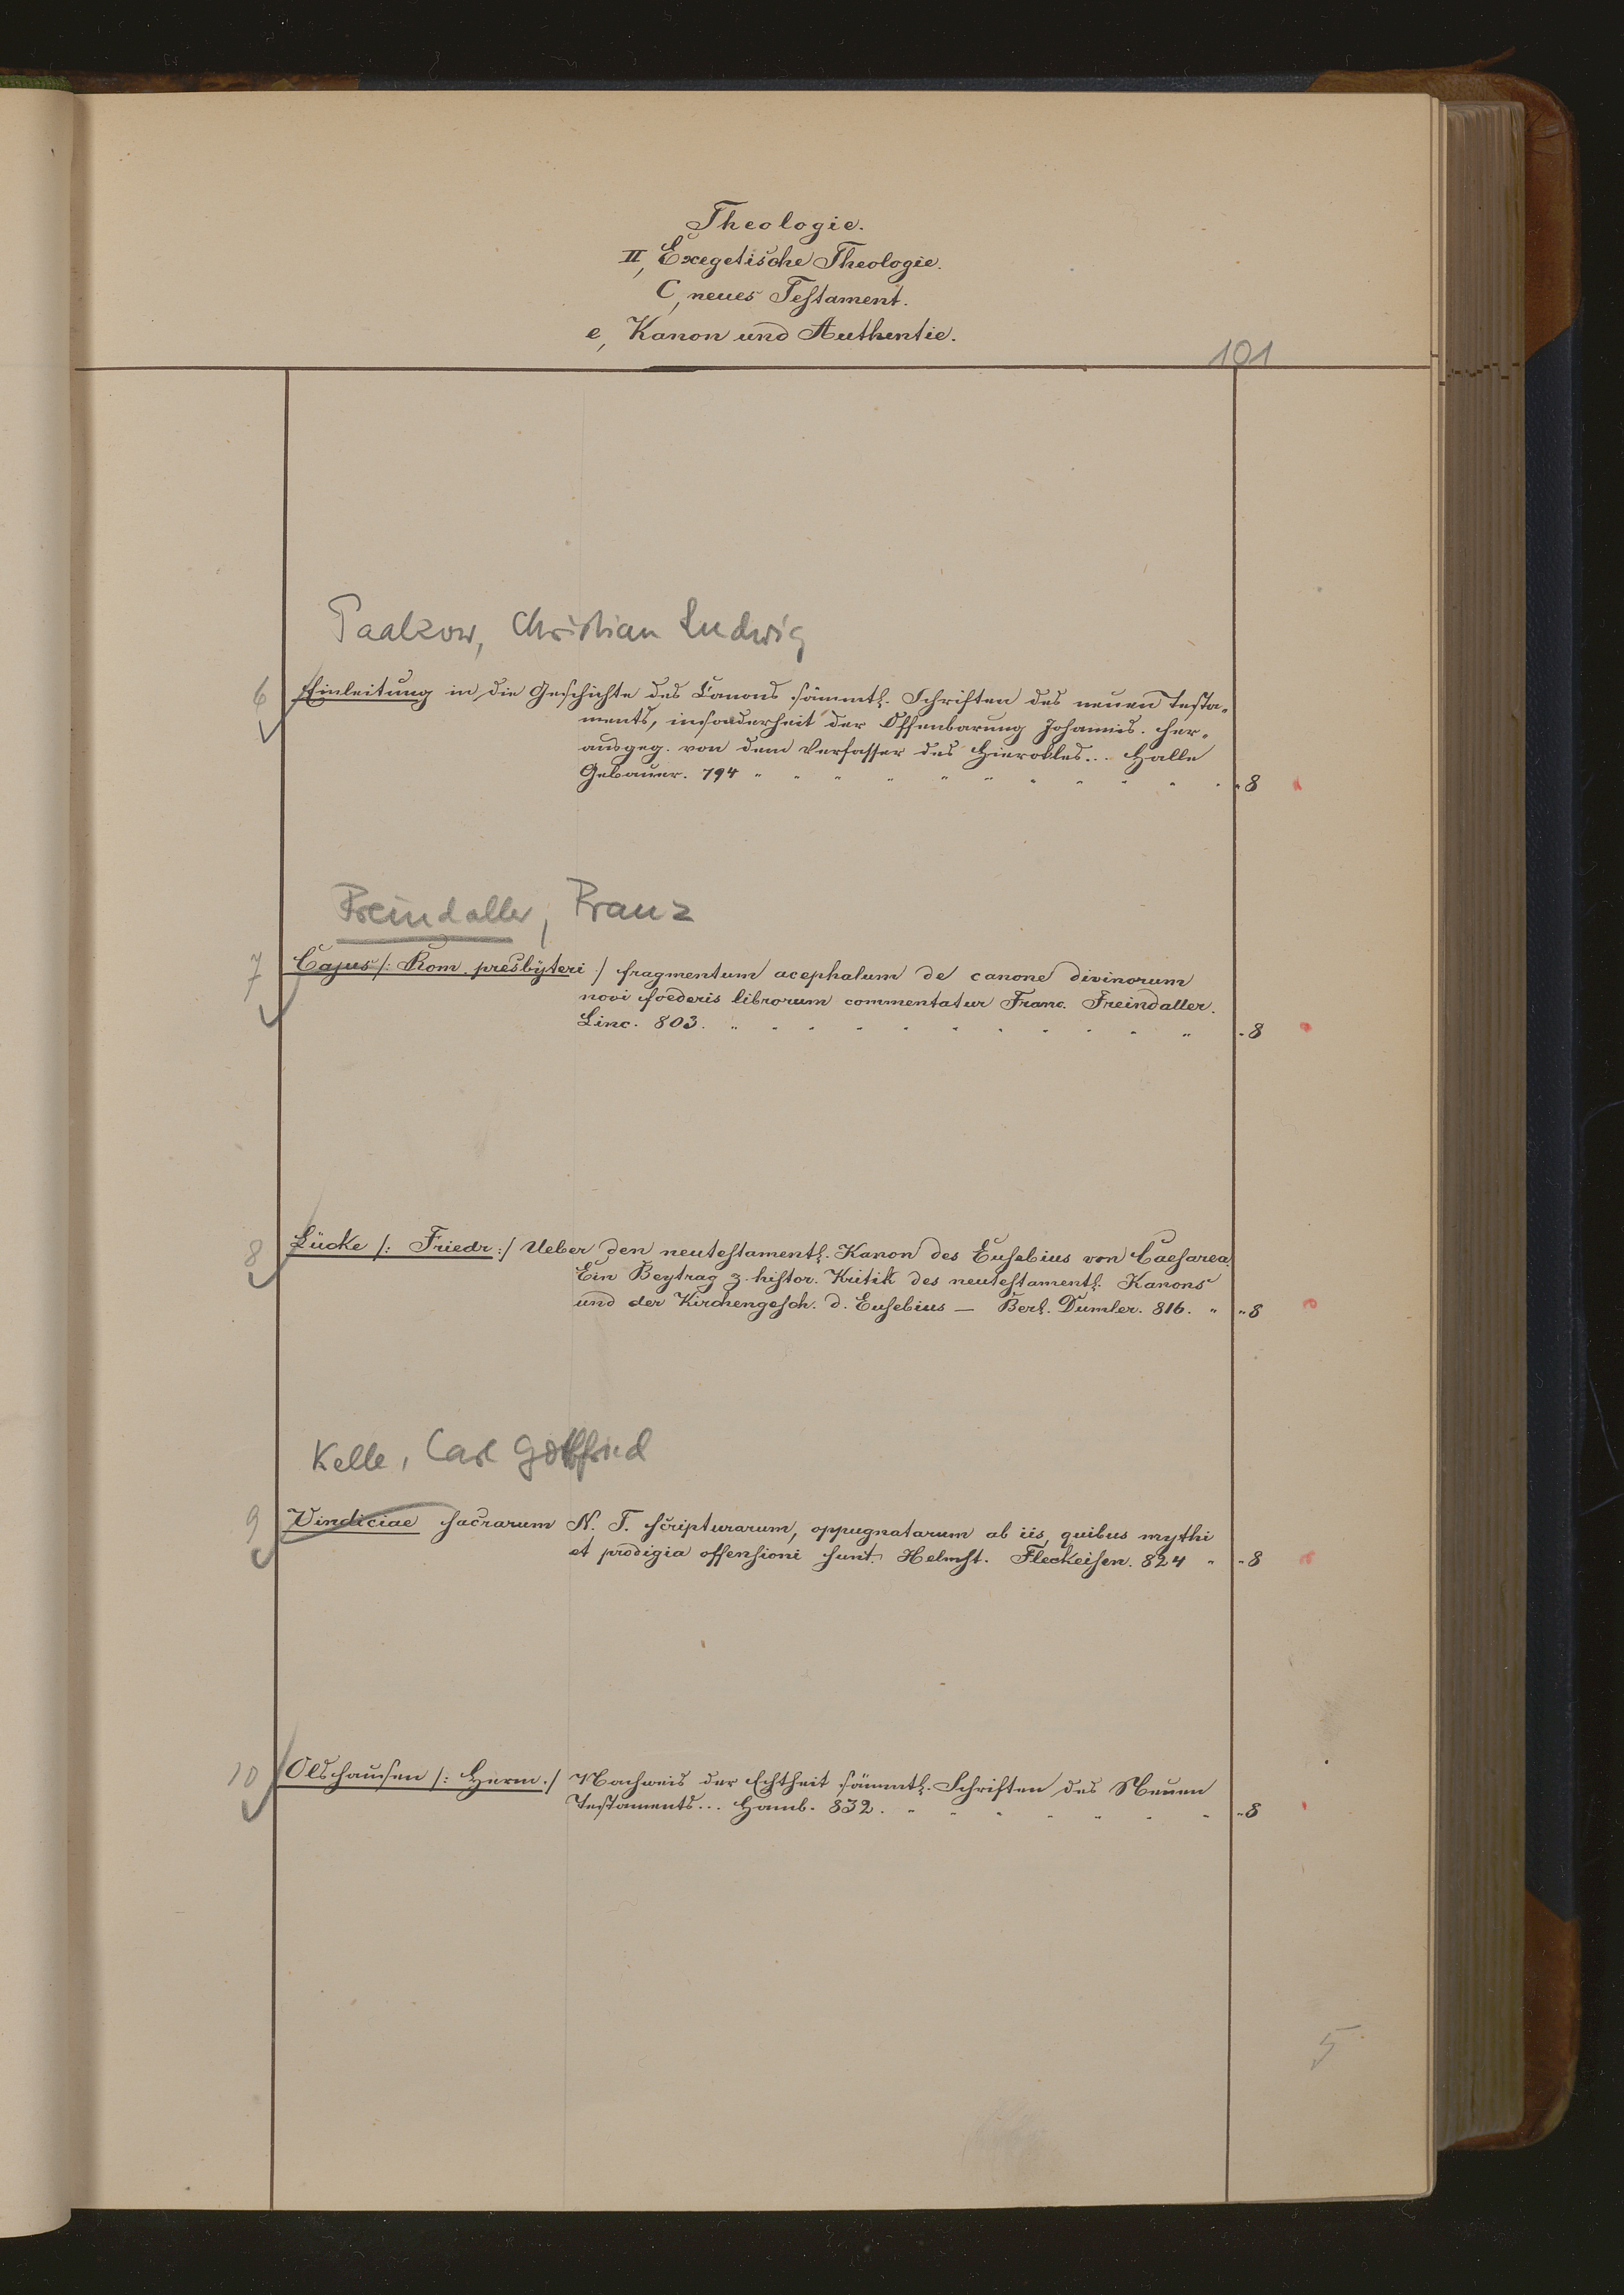 Theologie.
II, Exegetische Theologie.
C, neues Testament.
e, Kanon und Authentie.
101
Paalzow, Christian Ludwig
6 Einleitung in die Geschichte des Canons sämmtl. Schriften des neuen Testa-
ments, insonderheit der Offenbarung Johannis. Her-
ausgeg. von dem Verfasser des Hierokles... Halle
Gebauer. 794 " " " " " " " " " " " 8
Freindaller, Franz
7 Cajus /: Rom. presbÿteri :/ fragmentum acephalum de canone divinorum
novi foederis librorum commentatur Franc. Freindaller.
Linc. 803. " " " " " " " " " " " 8
8 Lücke /: Friedr :/ Ueber den neutestamentl. Kanon des Eusebius von Caesarea.
Ein Beytrag z. histor. Kritik des neutestamentl. Kanons
und der Kirchengesch. d. Eusebius — Berl. Dümler. 816. " " 8
Kelle, Carl Gottfried
9 Vindiciae sacrarum N. T. scripturarum, oppugnatarum ab iis, quibus mythi
et prodigia offensioni sunt. Helmst. Fleckeisen. 824 " " 8
10 Olshausen /: Herm :/ Nachweis der Echtheit sämmtl. Schriften des Neuen
Testaments... Hamb. 832. " " " " " " " " 8
5